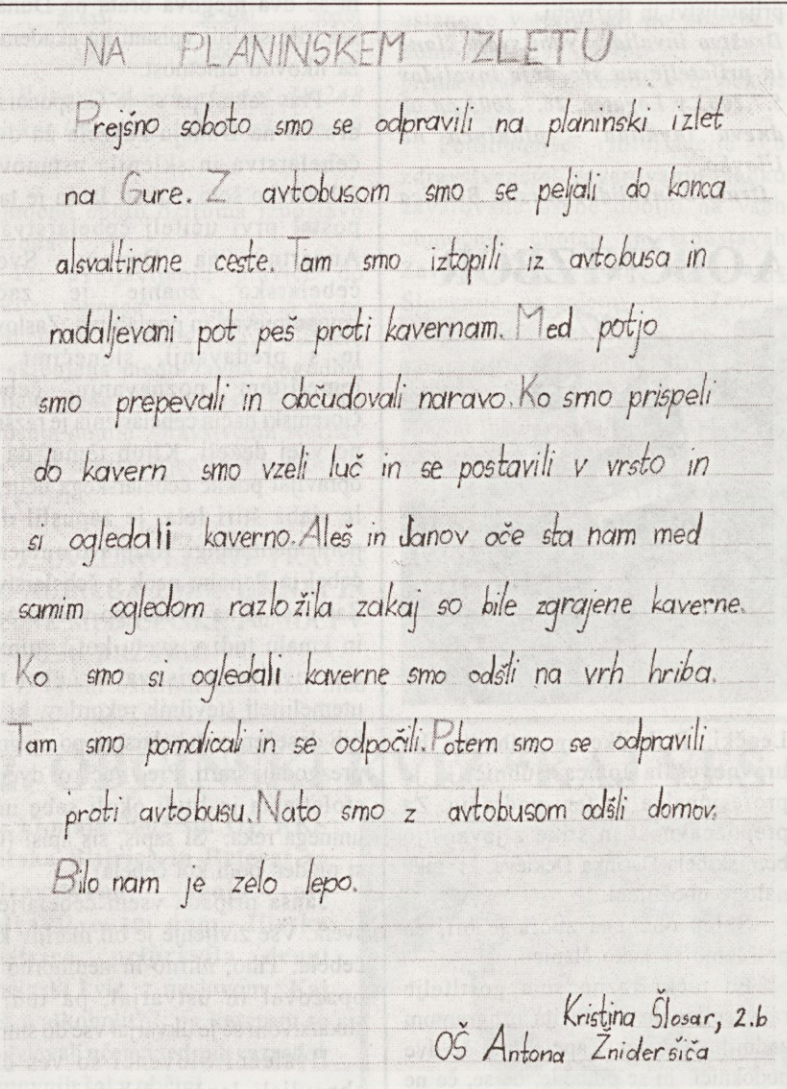 NA PLANINSKEM IZLETU
Prejšno soboto smo se odpravili na planinski izlet
na Gure. Z avtobusom smo se peljali do konca
alsvaltirane ceste. Tam smo iztopili iz avtobusa in
nadaljevani pot peš proti kavernam. Med potjo
smo prepevali in občudovali naravo. Ko smo prispeli
do kavern smo vzeli luč in se postavili v vrsto in
si ogledali kaverno. Aleš in Janov oče sta nam med
samim ogledom razložila zakaj so bile zgrajene kaverne.
Ko smo si ogledali kaverne smo odšli na vrh hriba.
Tam smo pomalicali in se odpočili. Potem smo se odpravili
proti avtobusu. Nato smo z avtobusom odšli domov.
Bilo nam je zelo lepo.
Kristina Šlosar, 2.b
OŠ Antona Žnideršiča